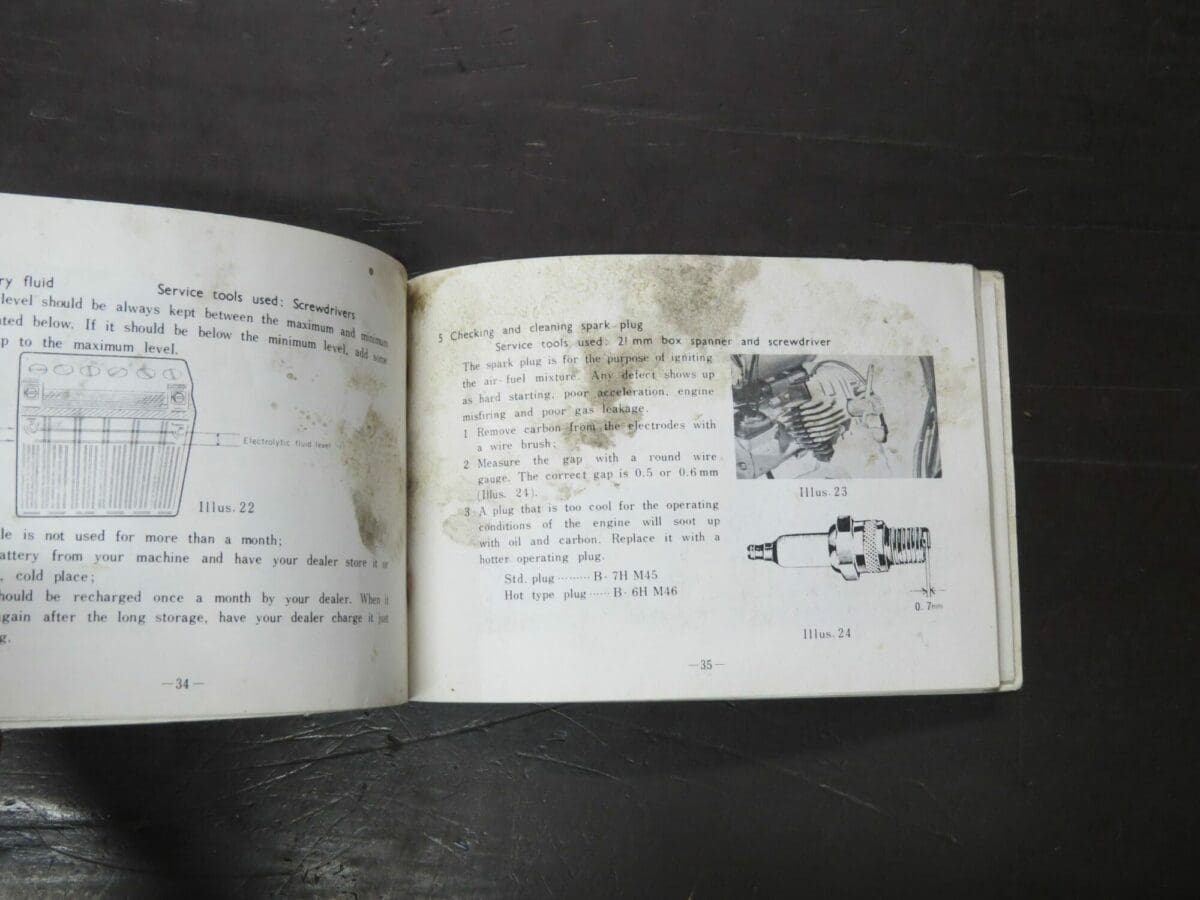 ry fluid
Service tools used: Screwdrivers
level should be always kept between the maximum and minimum
ated below. If it should be below the minimum level, add some
p to the maximum level.
Electrolytic fluid level
Illus. 22
le is not used for more than a month;
attery from your machine and have your dealer store it or
, cold place;
hould be recharged once a month by your dealer. When it
gain after the long storage, have your dealer charge it just
g.
—34—
5 Checking and cleaning spark plug
Service tools used: 21 mm box spanner and screwdriver
The spark plug is for the purpose of igniting
the air-fuel mixture. Any defect shows up
as hard starting, poor acceleration, engine
misfiring and poor gas leakage.
1 Remove carbon from the electrodes with
a wire brush;
2 Measure the gap with a round wire
gauge. The correct gap is 0.5 or 0.6 mm
(Illus. 24).
3 A plug that is too cool for the operating
conditions of the engine will soot up
with oil and carbon. Replace it with a
hotter operating plug.
Std. plug ········· B- 7H M45
Hot type plug ······ B- 6H M46
Illus. 23
0. 7mm
Illus. 24
—35—